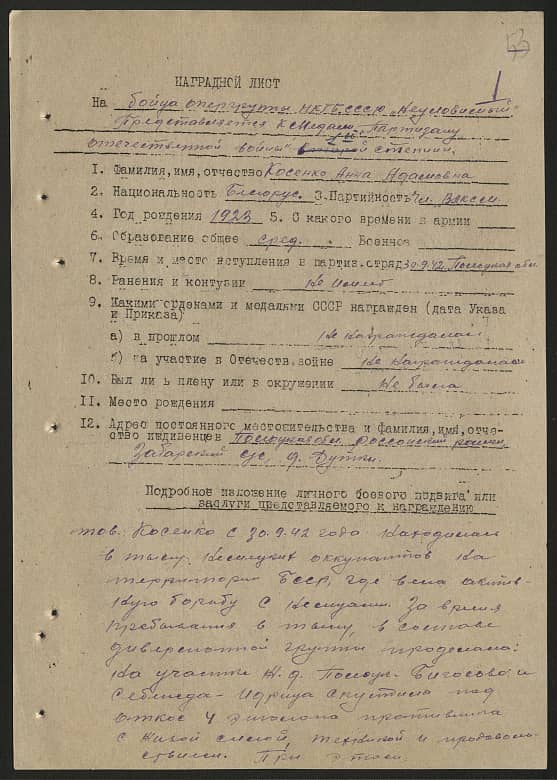 53
НАГРАДНОЙ ЛИСТ
На бойца опергруппы НКГБ СССР "Неуловимый"
Представляется к медали "Партизану
отечественной войны" степени.
1. Фамилия, имя, отчество Косенко Анна Адамовна
2. Национальность Белорус. 3. Партийность чл. ВЛКСМ
4. Год рождения 1923 5. С какого времени в армии
6. Образование общее сред. Военное
7. Время и место вступления в партиз. отряд 30.9.42. Полоцкая обл.
8. Ранения и контузии Не имеет
9. Какими орденами и медалями СССР награжден (дата Указа
и Приказа)
а) в прошлом Не награждалась
б) за участие в Отечеств. войне Не награждалась
10. Был ли в плену или в окружении Не была
11. Место рождения
12. Адрес постоянного местожительства и фамилия, имя, отче-
ство иждивенцев Полоцкая обл. Россонский район
с/с, д.
Подробное изложение личного боевого подвига или
заслуги представляемого к награждению
тов. Косенко с 30.9.42 года находилась
в тылу немецких оккупантов на
территории БССР, где вела актив-
ную борьбу с немцами. За время
пребывания в тылу в составе
диверсионной группы проделала:
на участке ж.д. Полоцк-Бигосово и
Себеж-Идрица спустила под
откос 4 эшелона противника
с живой силой, техникой и продоволь-
ствием. При этом